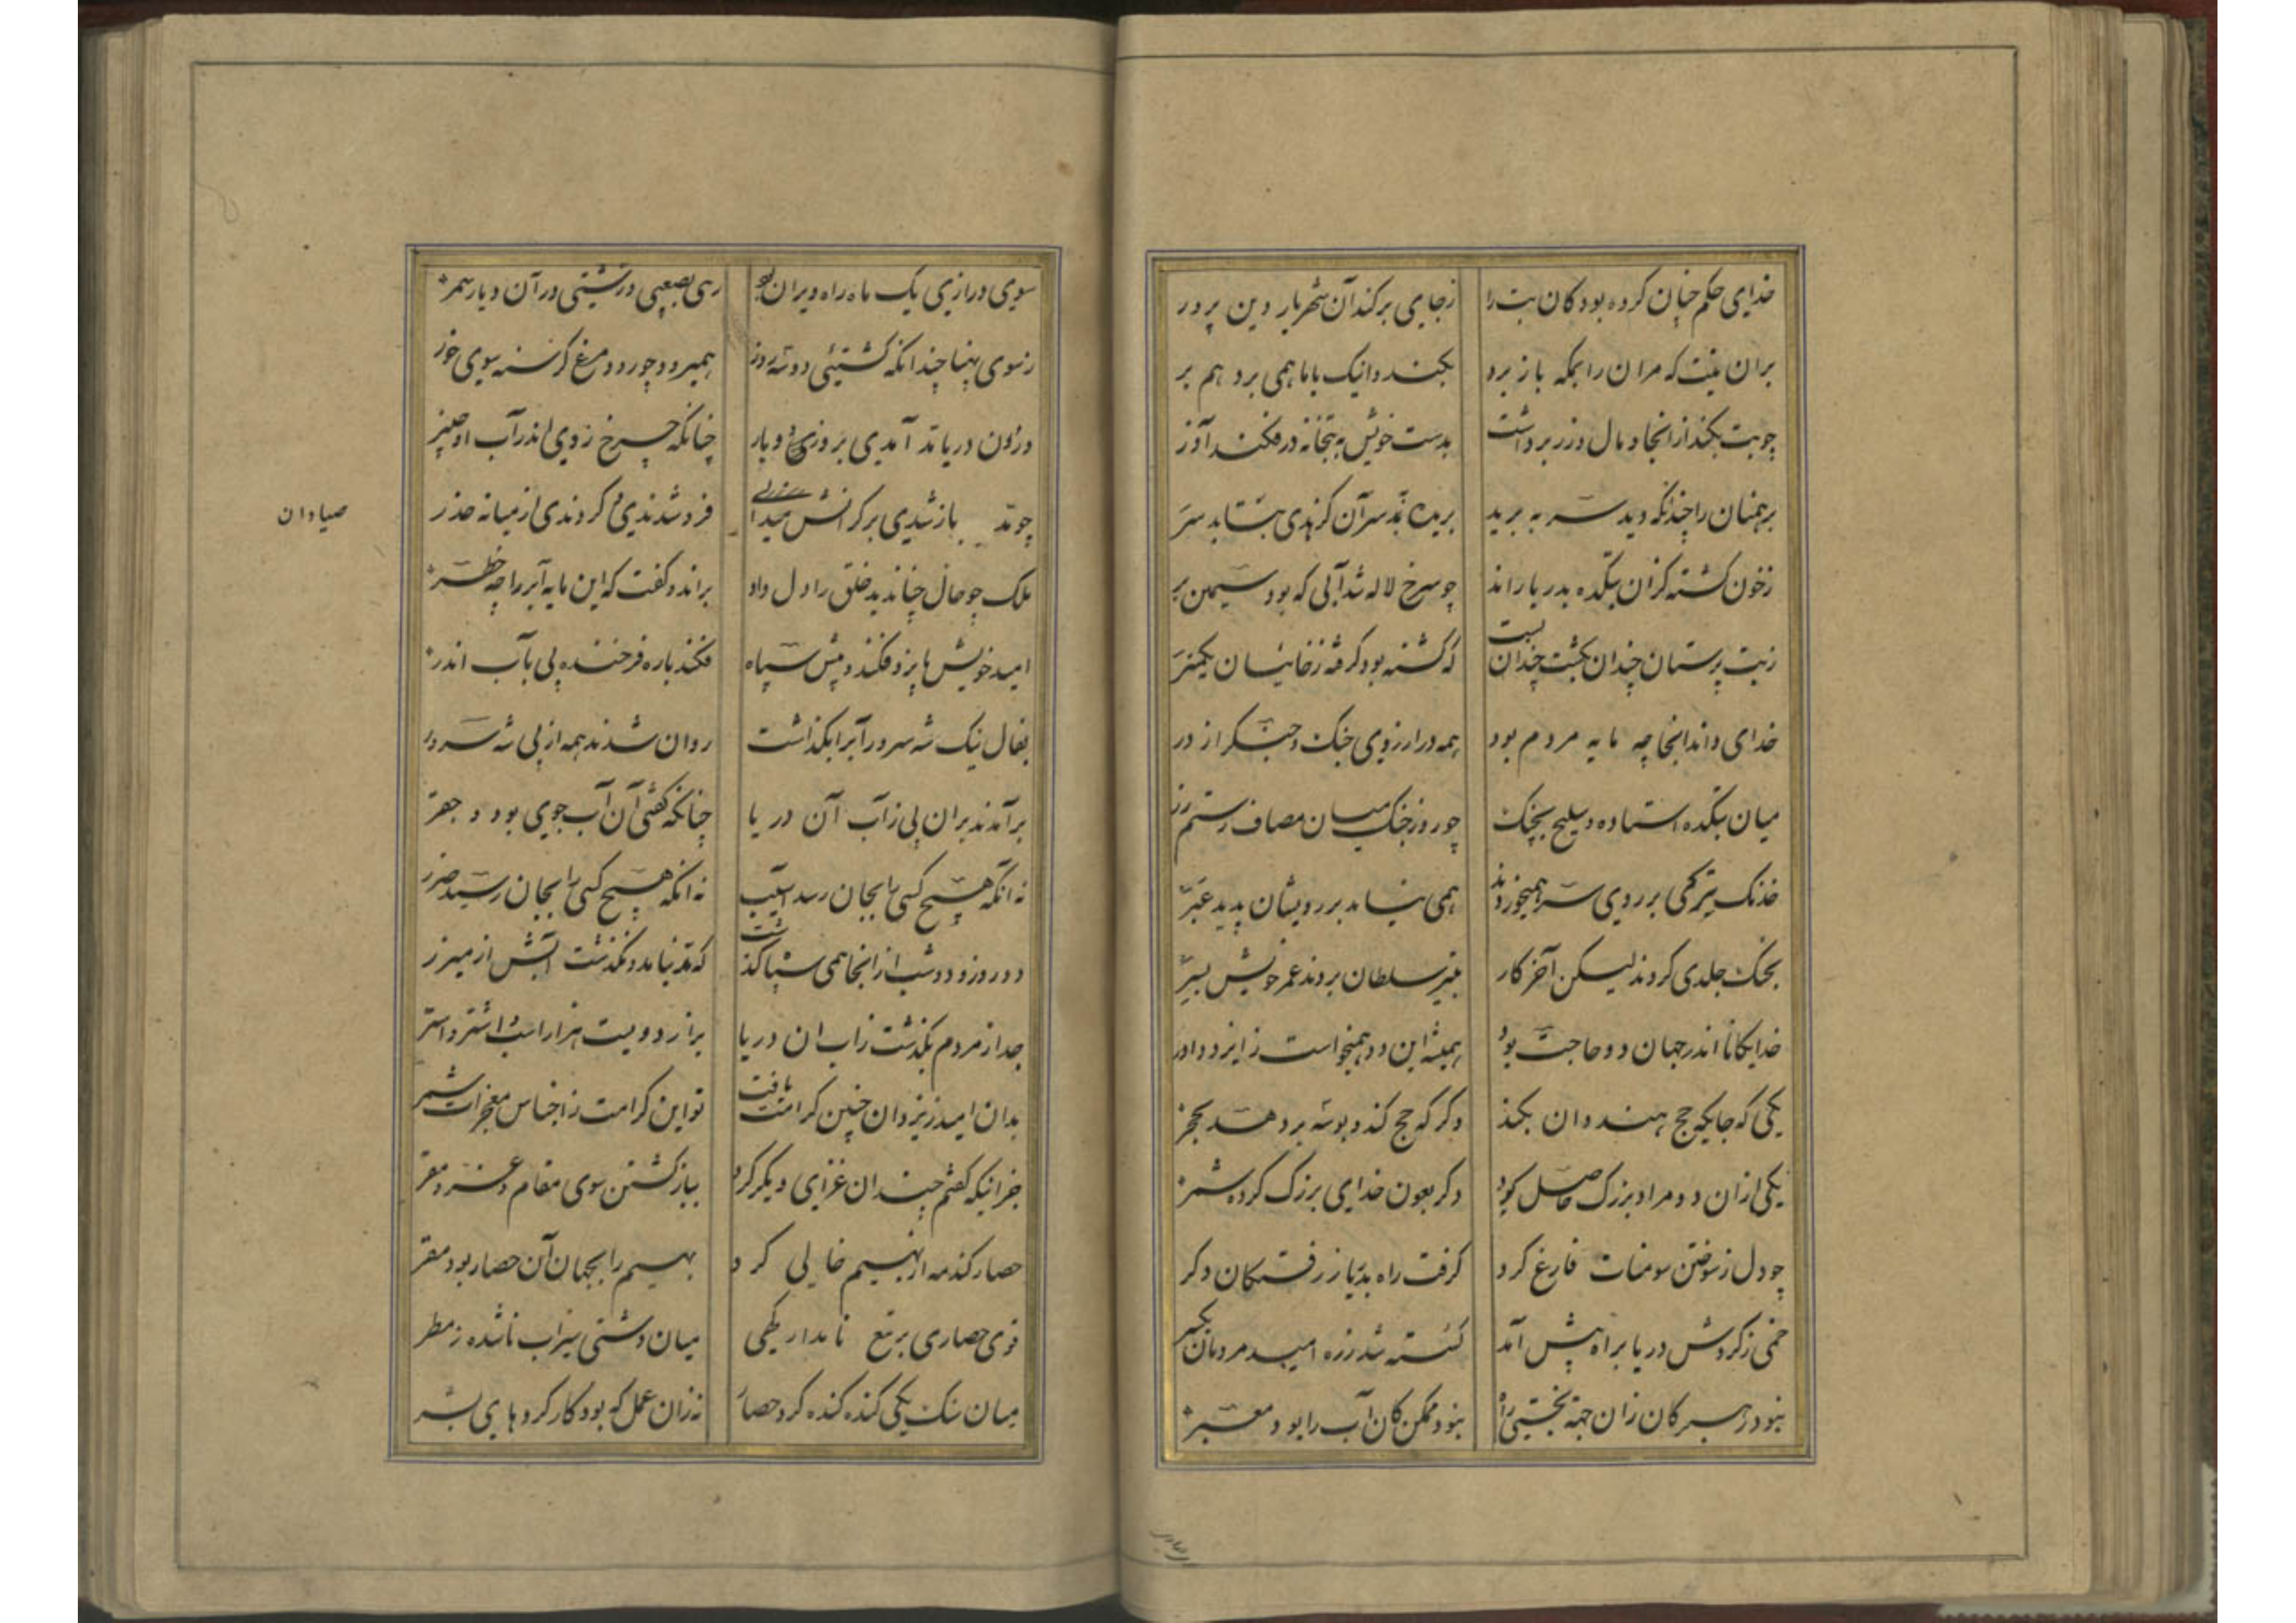 خدای حکم چنان کرده بود کان بت را زجای برکند آن شهریار دین پرور
بران نیت که مران را بمکه باز برد بکند و اینک باما همی برد هم بر
چو بت بکند از انجا و مال و زر برداشت بدست خویش به بتخانه در فکند آذر
برهمنان را چندانکه دید سر به برید بریده به سر آن کز هدی بتابد سر
زخون کشته کزان بتکده بدریا راند چو سرخ لاله شد آبی که بود سیمین بر
زبت پرستان چندان بکشت و چندان بست که کشته بود و کرفته زخانیان یکسر
خدای داند انجا چه مایه مردم بود همه در ارزوی جنک و جنک را از در
میان بتکده استاده و سلیح بچنک چو روز جنک میان مصاف رستم زر
خدنک ترکی بر روی سر همیخوردند همی نیامد بر رویشان پدید عبر
بجنک جلدی کردند لیکن آخر کار بتیر سلطان بردند عمر خویش بسر
خدایکانا اندر جهان دو حاجت بود همیشه این دو همیخواست زایزد داور
یکی که جایکه حج هندوان بکند دکر که حج کند و بوسه بر دهد بحجر
یکی ازان دو مراد بزرک حاصل کرد دکر بعون خدای بزرک کرده شمر
چو دل زسوختن سومنات فارغ کرد کرفت راه بدریا ز رفتکان دکر
خمی زکردش دریا براه پیش آمد کسسته شد زره امید مردمان یکسر
نبود رهبر کان زان جهة بجستی راه نبود ممکن کان آب را بود معبر
سوی درازی یک ماه راه ویران بود رهی بصعبی و زشتی در آن دیار سمر
زسوی پهنا چندانکه کشتیی دو سه روز همیرود چو رود مرغ کرسنه سوی خور
درون دریا مد آمدی بروزی دو بار چنانکه چرخ زدی اندر آب او چنبر
چو مد بازشدی بر کرانش صیادان فرو شدندی و کردندی از میانه حذر
صیادان
ملک چو حال چنان دید خلق را دل داد براند و گفت که این مایه آب را چه خطر
امید خویش بایزد فکند و پیش سپاه فکند باره فرخنده پی بآب اندر
بفال نیک شه سرور آبرا بکذاشت روان شدند همه از پی شه سرور
برآمدند بران پی زآب آن دریا چنانکه کفتی آن آب جوی بود و جعفر
نه آنکه هیچ کسی را بجان رسید آسیب نه آنکه هیچ کسی را بجان رسید ضرر
دو روز و دو شب از انجا همی سپاه کذشت که مد نیامد و نکذشت آبش از میزر
جدا زمردم بکذشت زاب ان دریا بر از دویست هزار اسب و اشتر و استر
بدان امید زیزدان چنین کرامت یافت تو این کرامت زاجناس معجزات شمر
جز اینکه کفتم چندان غزای دیکر کرد بباز کشتن سوی مقام عز و مقر
حصار کندمه از بهیم خالی کرد بهیم را بجهان آن حصار بود مقر
قوی حصاری بر تیغ نامدار کهی میان دشتی سیراب ناشده زمطر
میان سنک یکی کنده کنده کرد حصار نه زان عمل که بود کار کردهای بشر